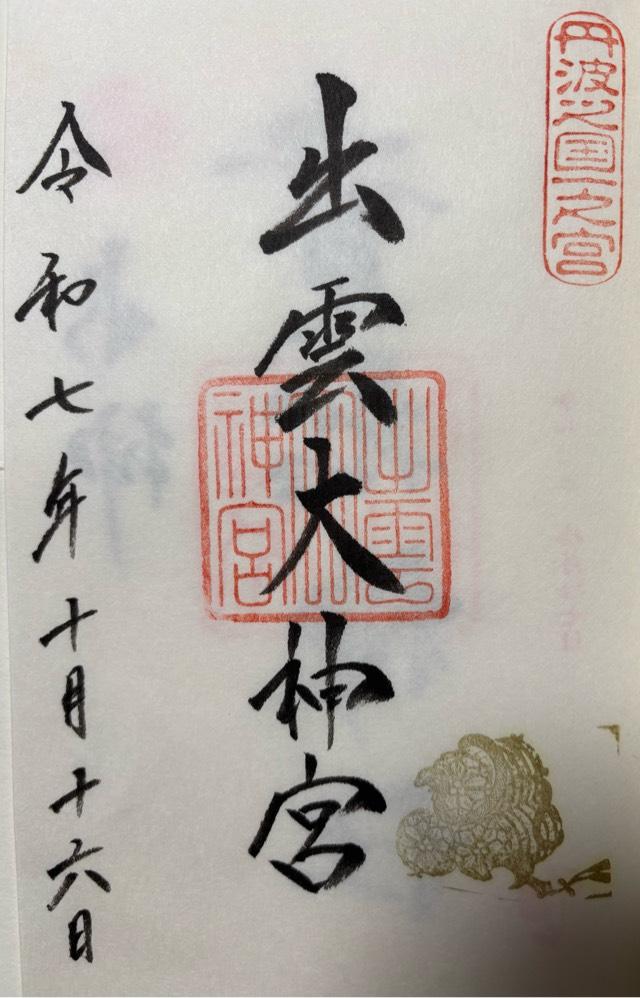 丹波之国一之宮
出雲大神宮
出雲大神宮
令和七年十月十六日